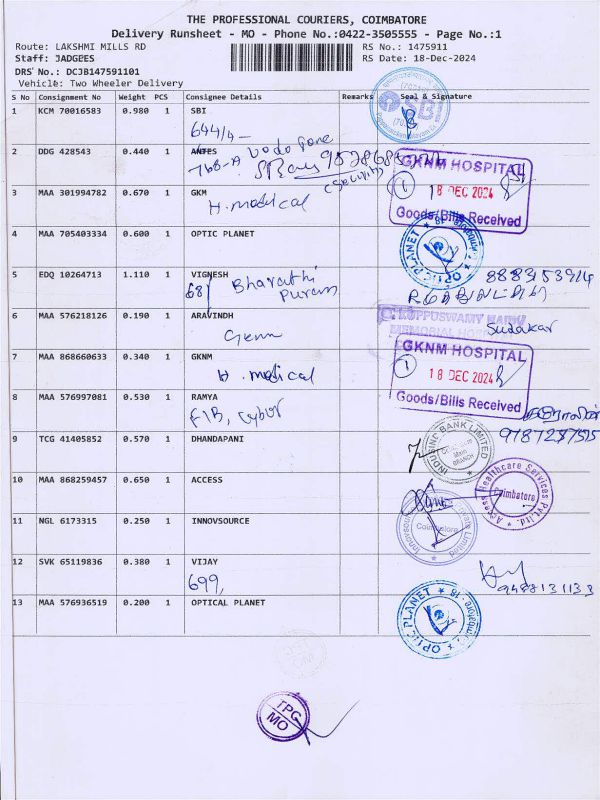 THE PROFESSIONAL COURIERS, COIMBATORE
Delivery Runsheet - MO - Phone No.:0422-3505555 - Page No.:1
Route: LAKSHMI MILLS RD RS No.: 1475911
Staff: JADGEES RS Date: 18-Dec-2024
DRS No.: DCJB147591101
Vehicle: Two Wheeler Delivery
S No Consignment No Weight PCS Consignee Details Remarks Seal & Signature
1 KCM 70016583 0.980 1 SBI
644/4-
SBI
2 DDG 428543 0.440 1 ANTES
768-A Vodofone
(Security)
GKNM HOSPITAL
1 18 DEC 2024
Goods/Bills Received
3 MAA 301994782 0.670 1 GKM
H. medical
4 MAA 705403334 0.600 1 OPTIC PLANET
OPTIC PLANET
5 EDQ 10264713 1.110 1 VIGNESH
681 Bharathi
Puram
8883153914
6 MAA 576218126 0.190 1 ARAVINDH
Genn
Sudakar
7 MAA 868660633 0.340 1 GKNM
H. medical
GKNM HOSPITAL
1 18 DEC 2024
Goods/Bills Received
8 MAA 576997081 0.530 1 RAMYA
F1B, Cybor
9 TCG 41405852 0.570 1 DHANDAPANI
INDUSIND BANK LIMITED
Main
BRANCH
10 MAA 868259457 0.650 1 ACCESS
Access Healthcare Services Pvt.Ltd.
Coimbatore
11 NGL 6173315 0.250 1 INNOVSOURCE
Coimbatore
12 SVK 65119836 0.380 1 VIJAY
699,
9488131133
13 MAA 576936519 0.200 1 OPTICAL PLANET
OPTIC PLANET
TPC
MO